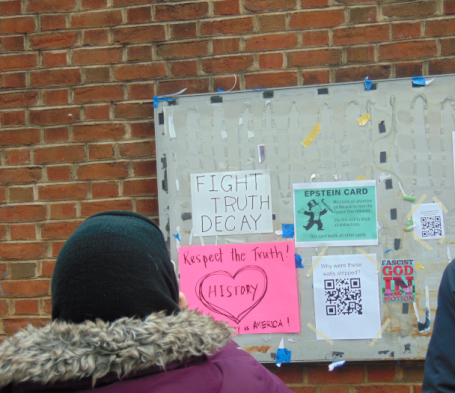 FIGHT
TRUTH
DECAY
EPSTEIN CARD
Respect the Truth!
HISTORY
AMERICA!
Why were these
walls stripped?
FASCIST
GOD IN
MOTION